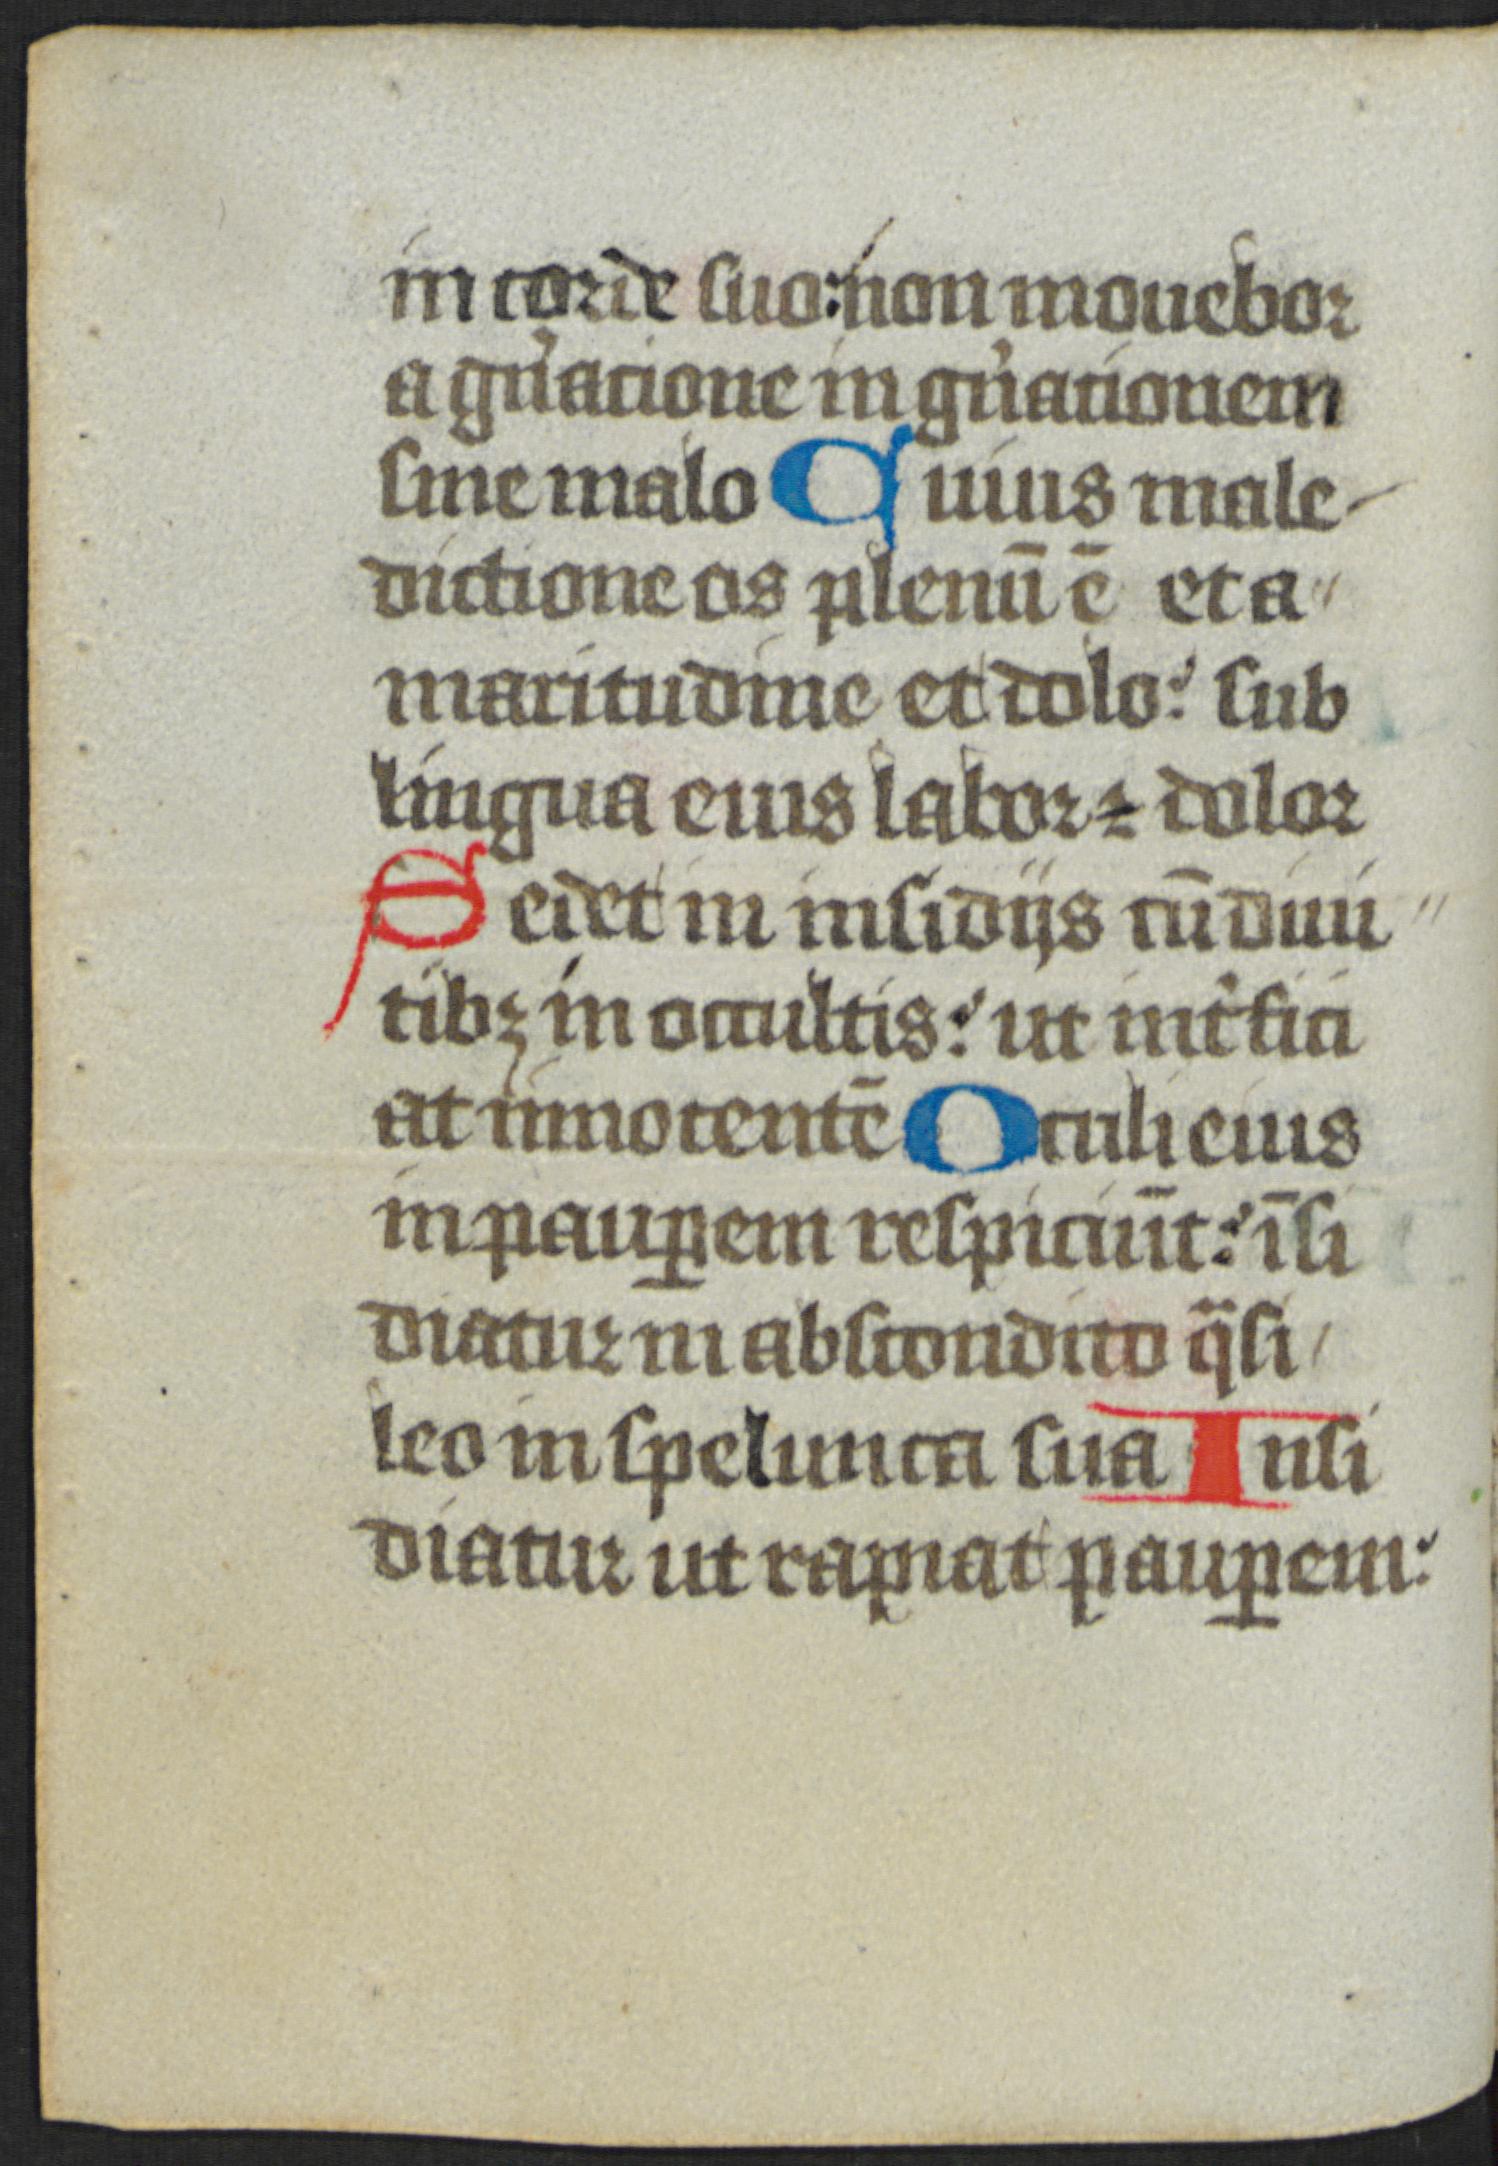 in corde suo: non mouebor
a gn̉atione in gn̉ationem
sine malo Quius male-
dictione os plenū ē et a"
maritudine et dolo: sub
lingua eius labor ⁊ dolor
Sedet in insidijs cū diui"
tibꝫ in occultis: ut int̉fici
at innocentē Oculi eius
in pauꝑem respiciūt: īsi
diatur in abscondito qͣsi/
leo in spelunca sua Insi
diatur ut rapiat pauꝑem: